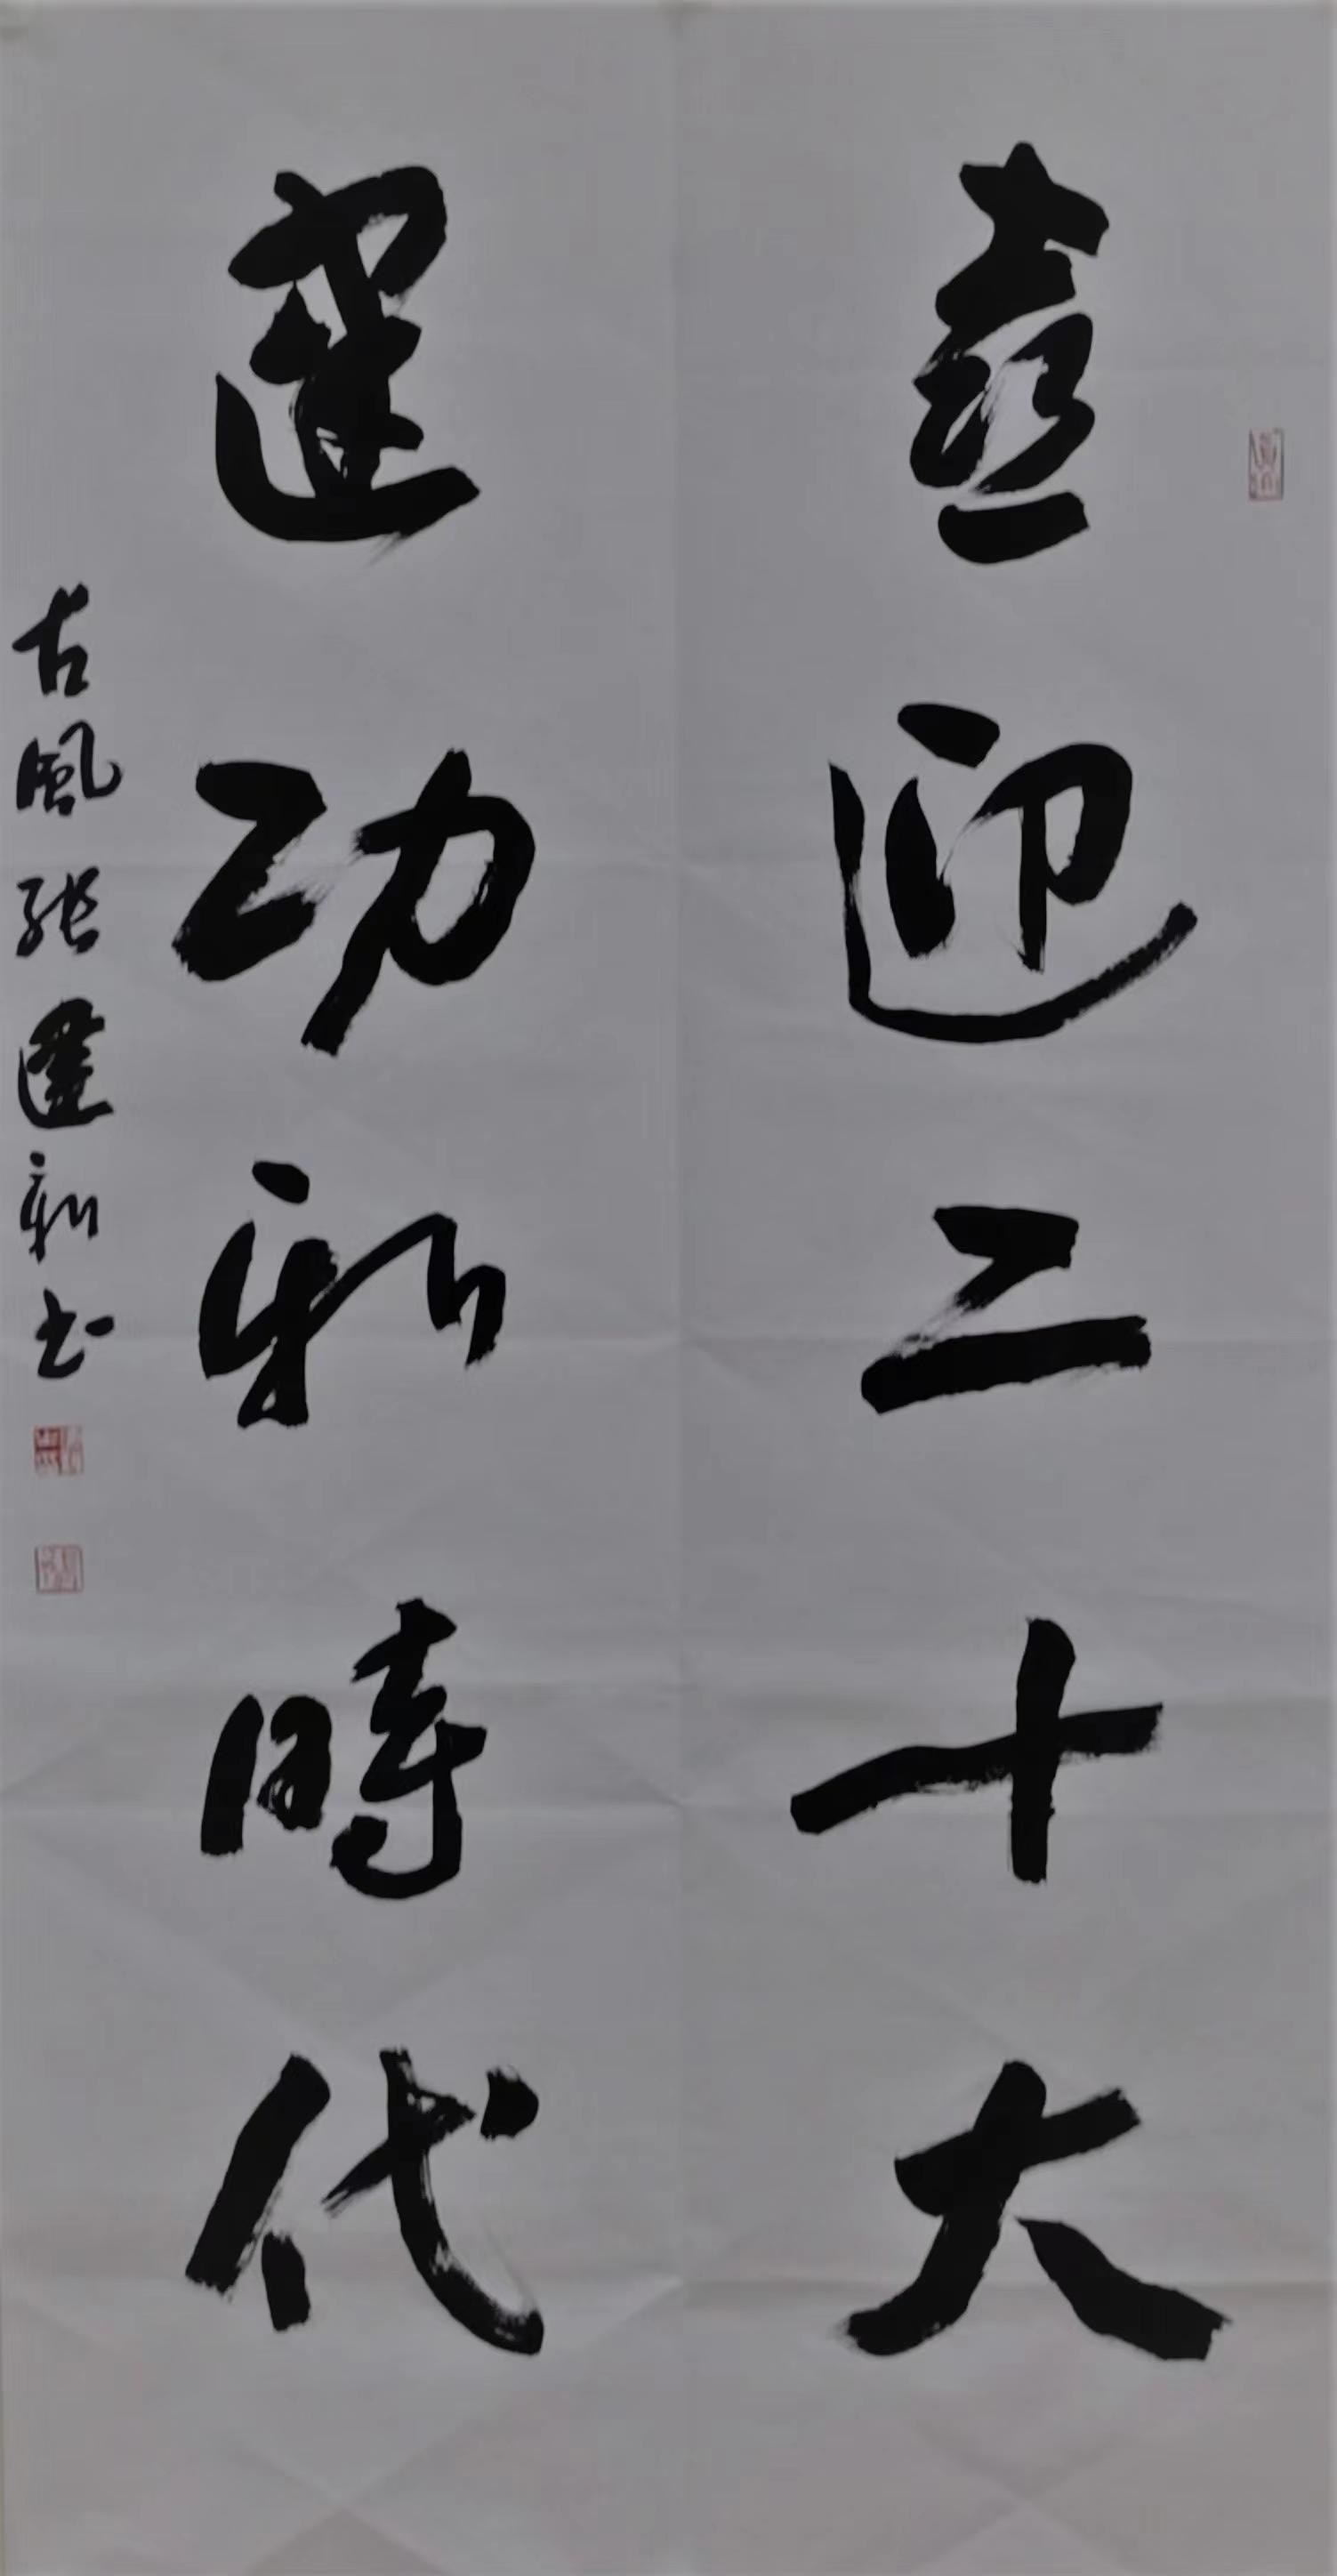 喜迎二十大
建功新時代
古風張蓬新书